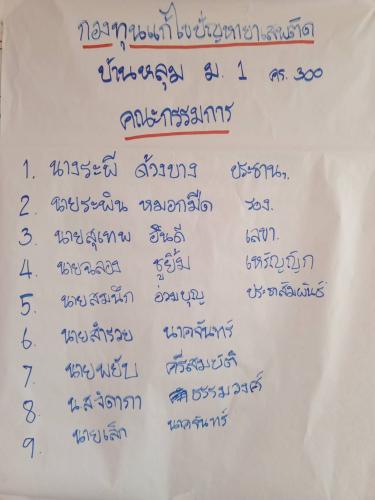 กองทุนแก้ไขปัญหายาเสพติด
บ้านหลุม ม. 1 คร. 300
คณะกรรมการ
1. นางระพี ด้วงบาง ประธานฯ.
2. นายระพิน หมอกมืด รอง.
3. นายสุเทพ อินดี เลขา.
4. นายฉลอง ชูยิ้ม เหรัญญิก
5. นายสมนึก อ่วมบุญ ประชาสัมพันธ์
6. นายสำรวย นาคจันทร์
7. นายพยับ ศรีสมบัติ
8. น.ส.จิดาภา ธรรมวงศ์
9. นายเล็ก นาคจันทร์